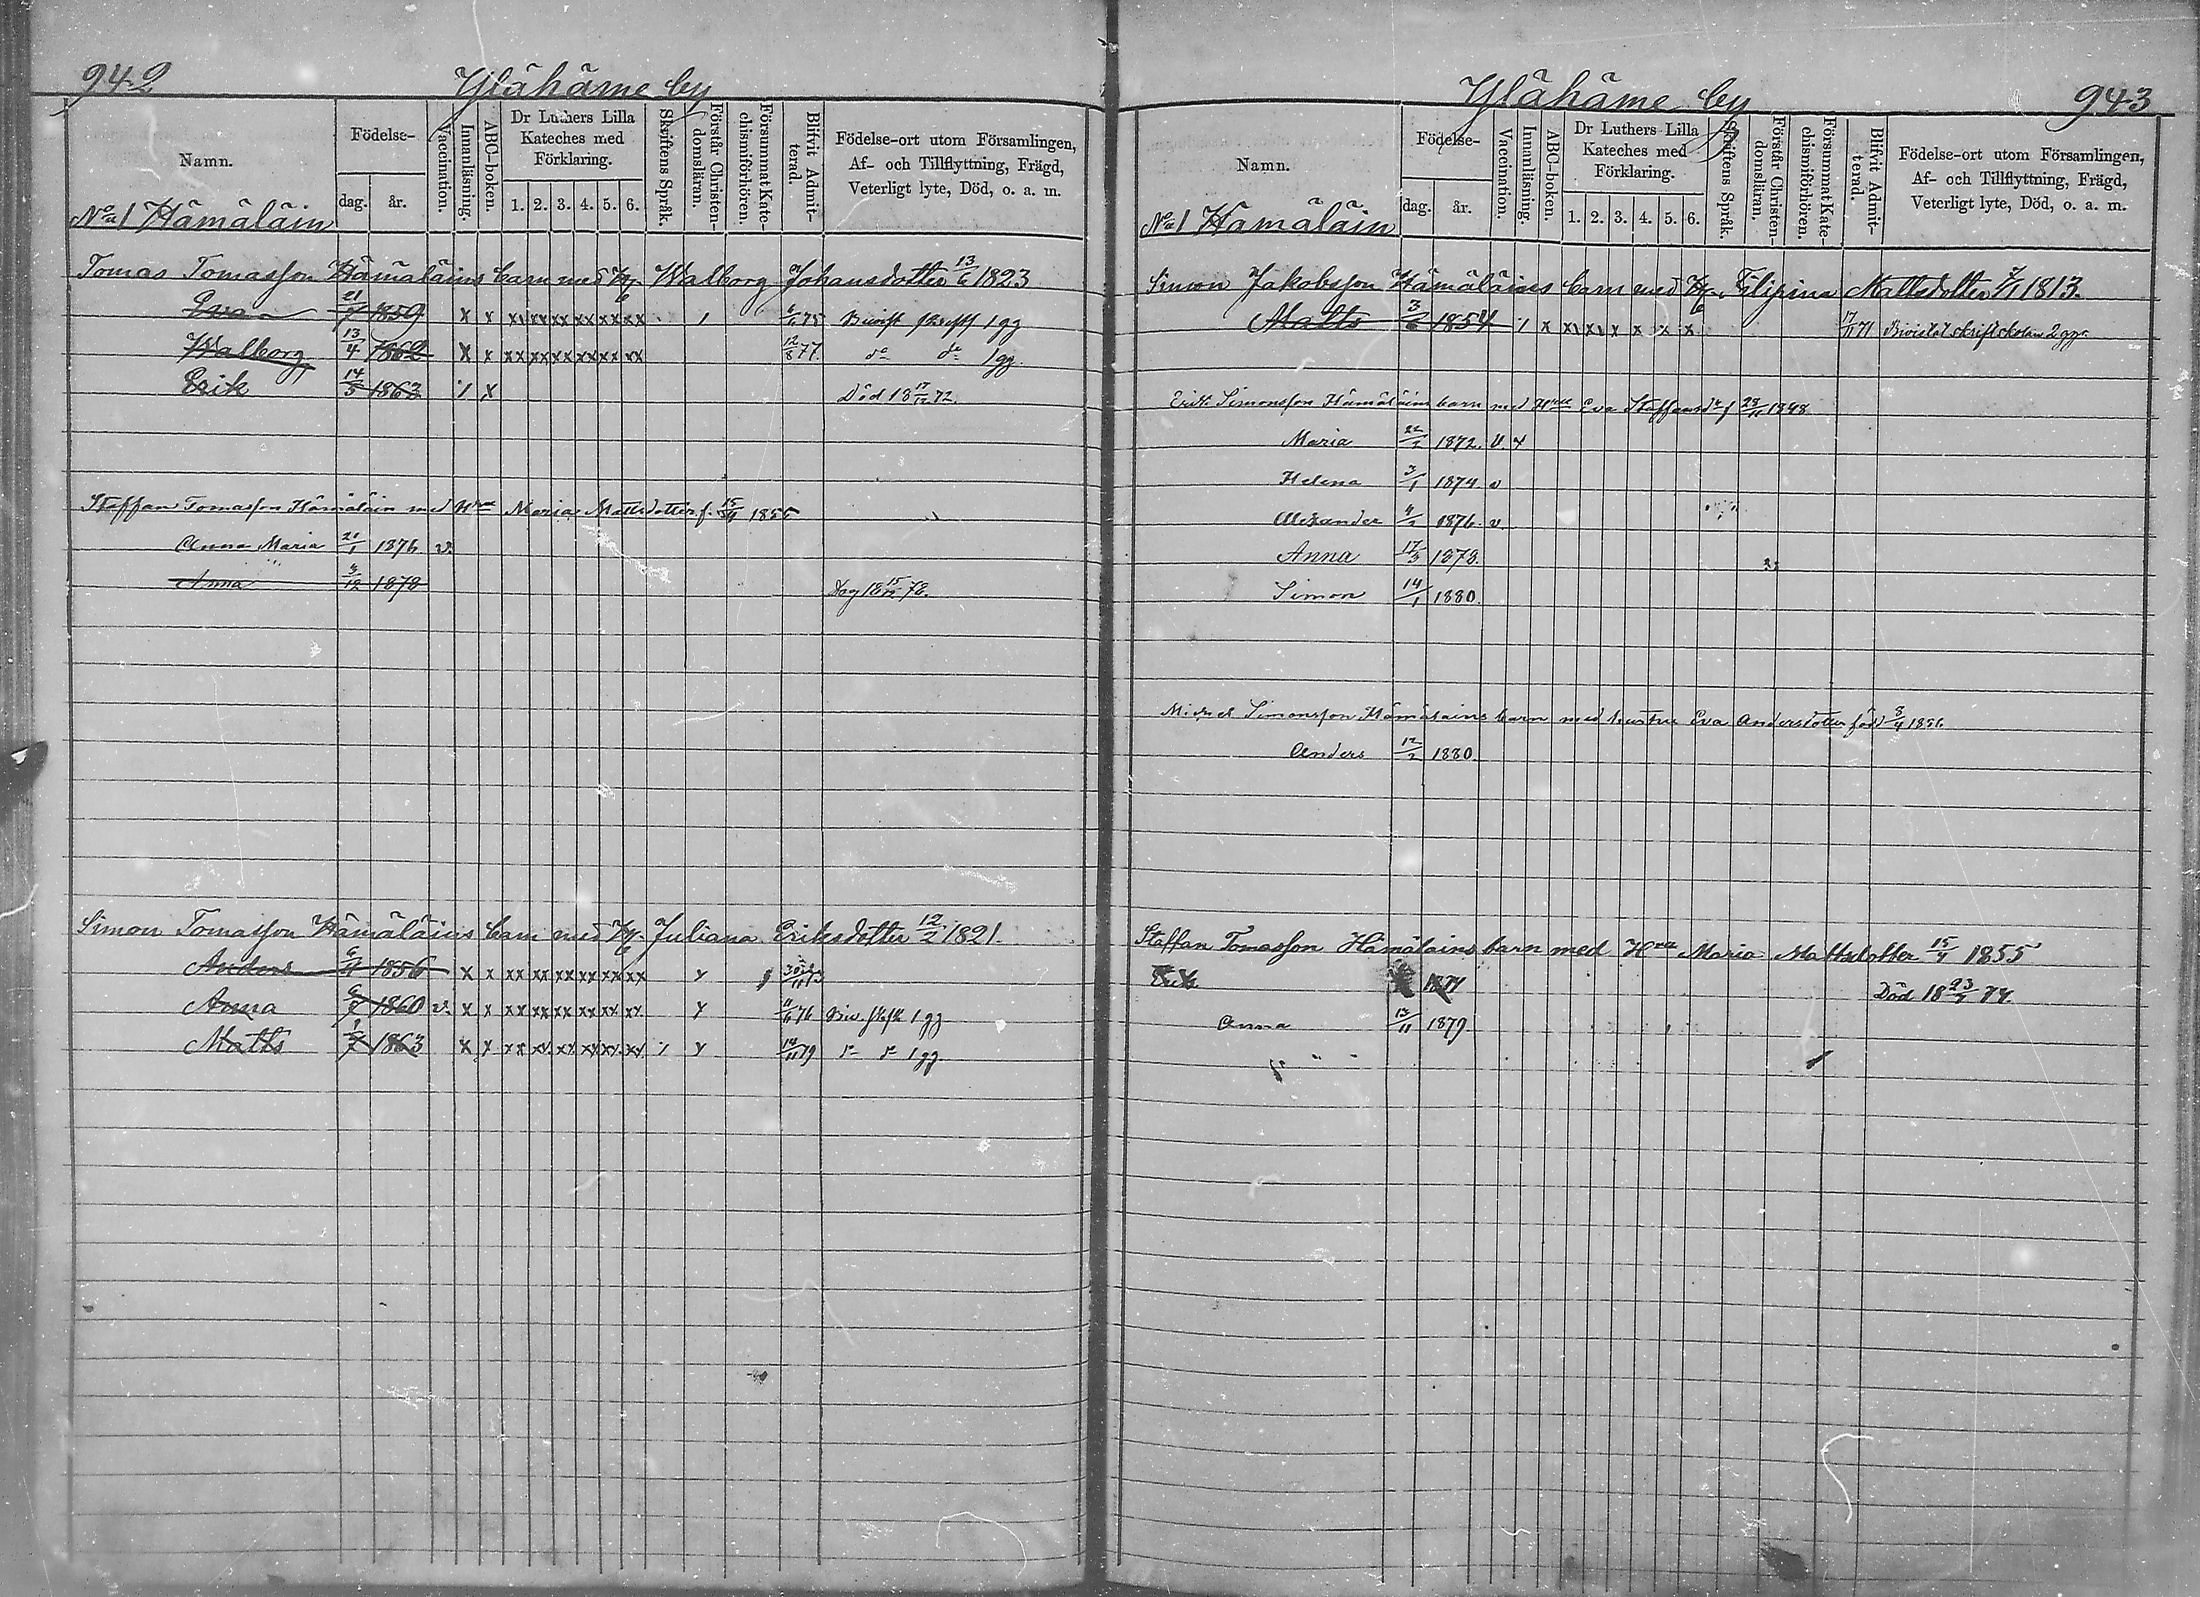 942
Ylähäme by
Namn.
Födelse-
dag.
år.
Vaccination.
Innanläsning.
ABC-boken.
Dr Luthers Lilla Kateches med Förklaring.
1. 2. 3. 4. 5. 6.
Skriftens Språk.
Förstår Christendomsläran.
Försummat Katechismiförhören.
Blifvit Admitterad.
Födelse-ort utom Församlingen, Af- och Tillflyttning, Frägd, Veterligt lyte, Död, o. a. m.
No 1 Hämäläin
Tomas Tomasson Hämäläins barn med Walborg Johansdotter 13/6 1823
Eva 21/7 1859 x x xx xx xx xx xx xx 1 6/6 75 1 gg
Walborg 13/4 1862 x x xx xx xx xx xx xx 12/8 77 do do 1 gg.
Erik 14/5 1863 x Död 18 17/12 72.
Staffan Tomasson Hämäläin med Hru Maria Mattsdotter f. 15/4 1855
Anna Maria 21/1 1876 v.
Anna 3/12 1878 Dog 18 15/12 78.
Simon Tomasson Hämäläins barn med Juliana Eriksdotter 12/2 1821.
Anders 6/11 1856 x x xx xx xx xx xx xx
Anna 6/7 1860 v. x x xx xx xx xx xx xx 11/6 76 1 gg
Matts 1/7 1863 x x xx xx xx xx xx xx 14/11 79 1 gg.
943
Ylähäme by
Namn.
Födelse-
dag.
år.
Vaccination.
Innanläsning.
ABC-boken.
Dr Luthers Lilla Kateches med Förklaring.
1. 2. 3. 4. 5. 6.
Skriftens Språk.
Förstår Christendomsläran.
Försummat Katechismiförhören.
Blifvit Admitterad.
Födelse-ort utom Församlingen, Af- och Tillflyttning, Frägd, Veterligt lyte, Död, o. a. m.
No 1 Hämäläin
Simon Jakobsson Hämäläins barn med Filipina Mattsdotter 1813.
Matts 3/6 1854 17/11 71 Bivistat skriftskolan 2 ggr
Erik Simonsson Hämäläins barn med Hru Eva Staffansdr f 28/11 1848
Maria 22/2 1872. v. x
Helena 3/1 1874. v
Alexander 4/2 1876. v
Anna 17/3 1878.
Simon 14/1 1880.
Michel Simonsson Hämäläins barn med hustru Eva Andersdotter född 8/4 1856
Anders 12/2 1880.
Staffan Tomasson Hämäläins barn med Hru Maria Mattsdotter 15/4 1855
Erik 1874 Död 18 23/2 74.
Anna 13/11 1879